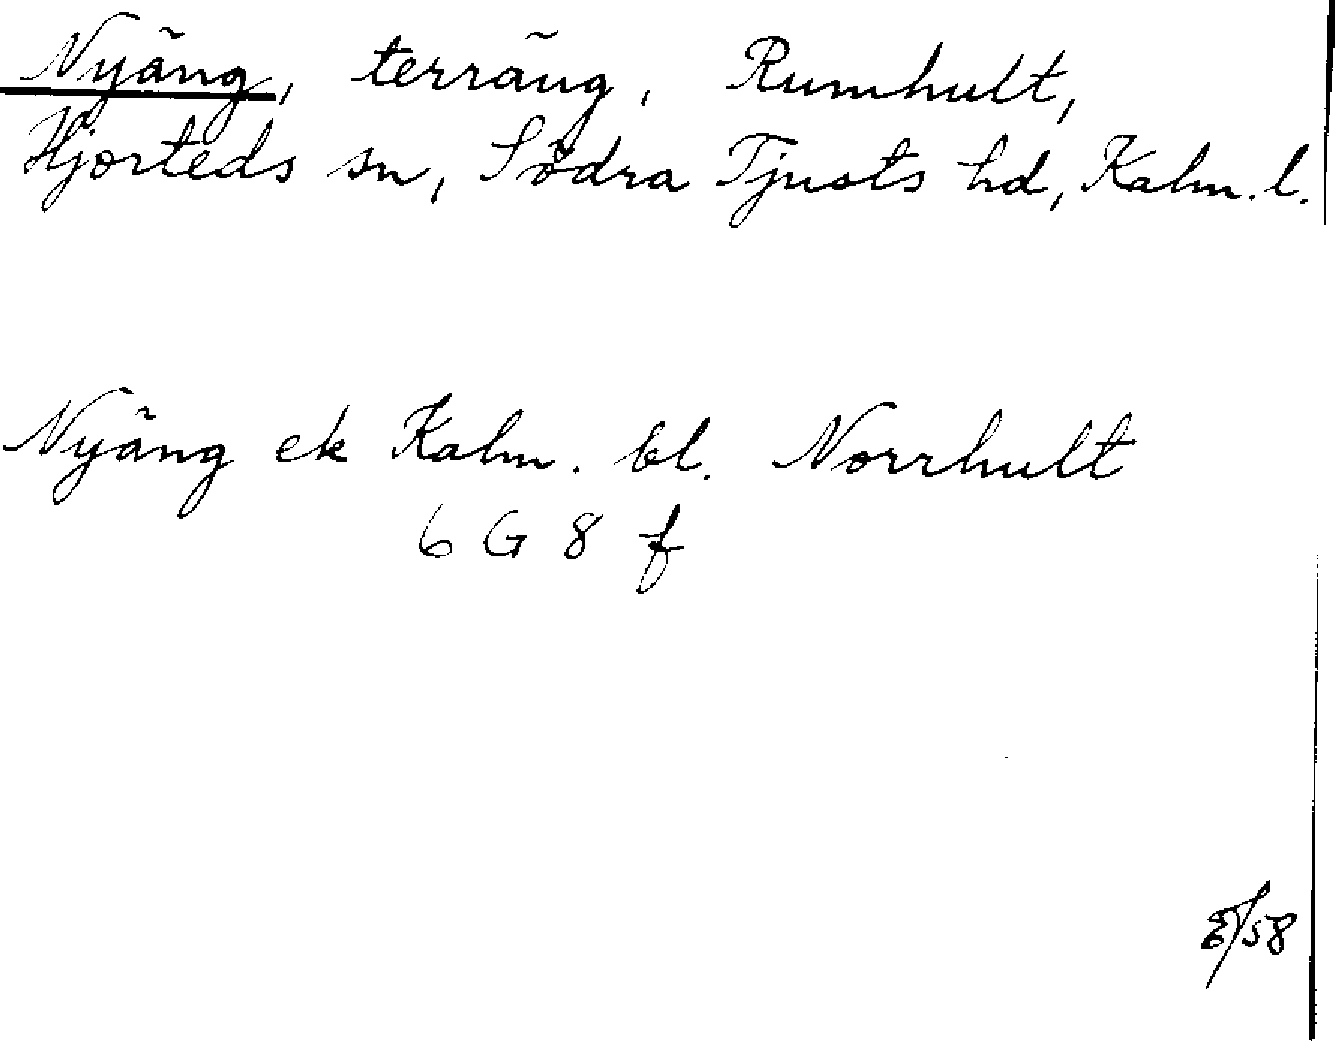 Nyäng, terräng, Rumhult,
Hjorteds sn, Södra Tjusts hd, Kalm. l.
Nyäng ek Kalm. bl. Norrhult
6 G 8 f